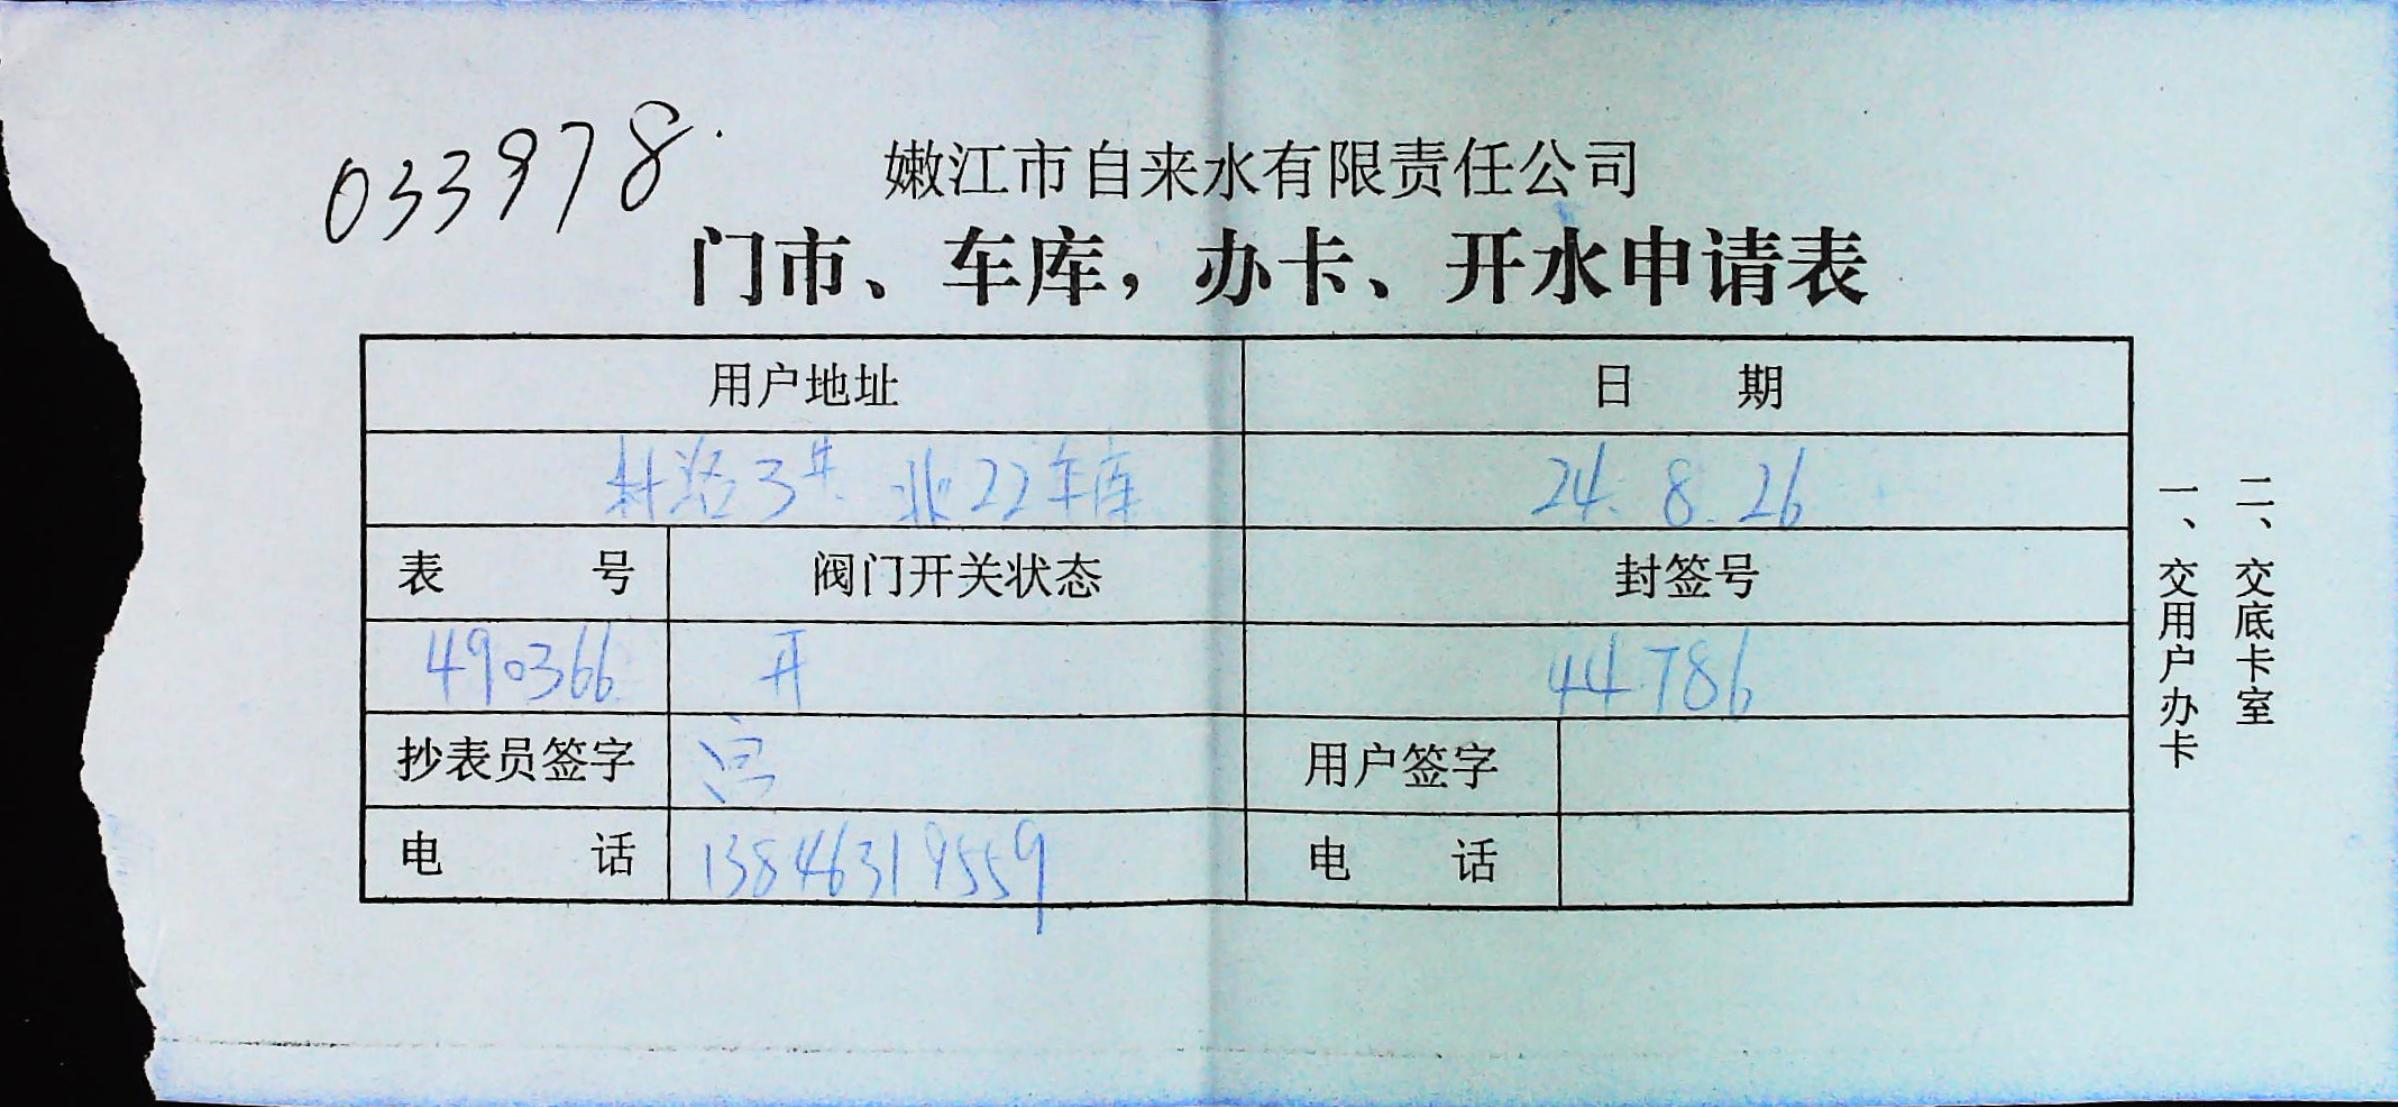 033978.
嫩江市自来水有限责任公司
门市、车库，办卡、开水申请表
用户地址 日 期
3# 北22车库 24. 8. 26
表 号 阀门开关状态 封签号
490366 开 44786
抄表员签字 用户签字
电 话 13846319559 电 话
二、交底卡室
一、交用户办卡